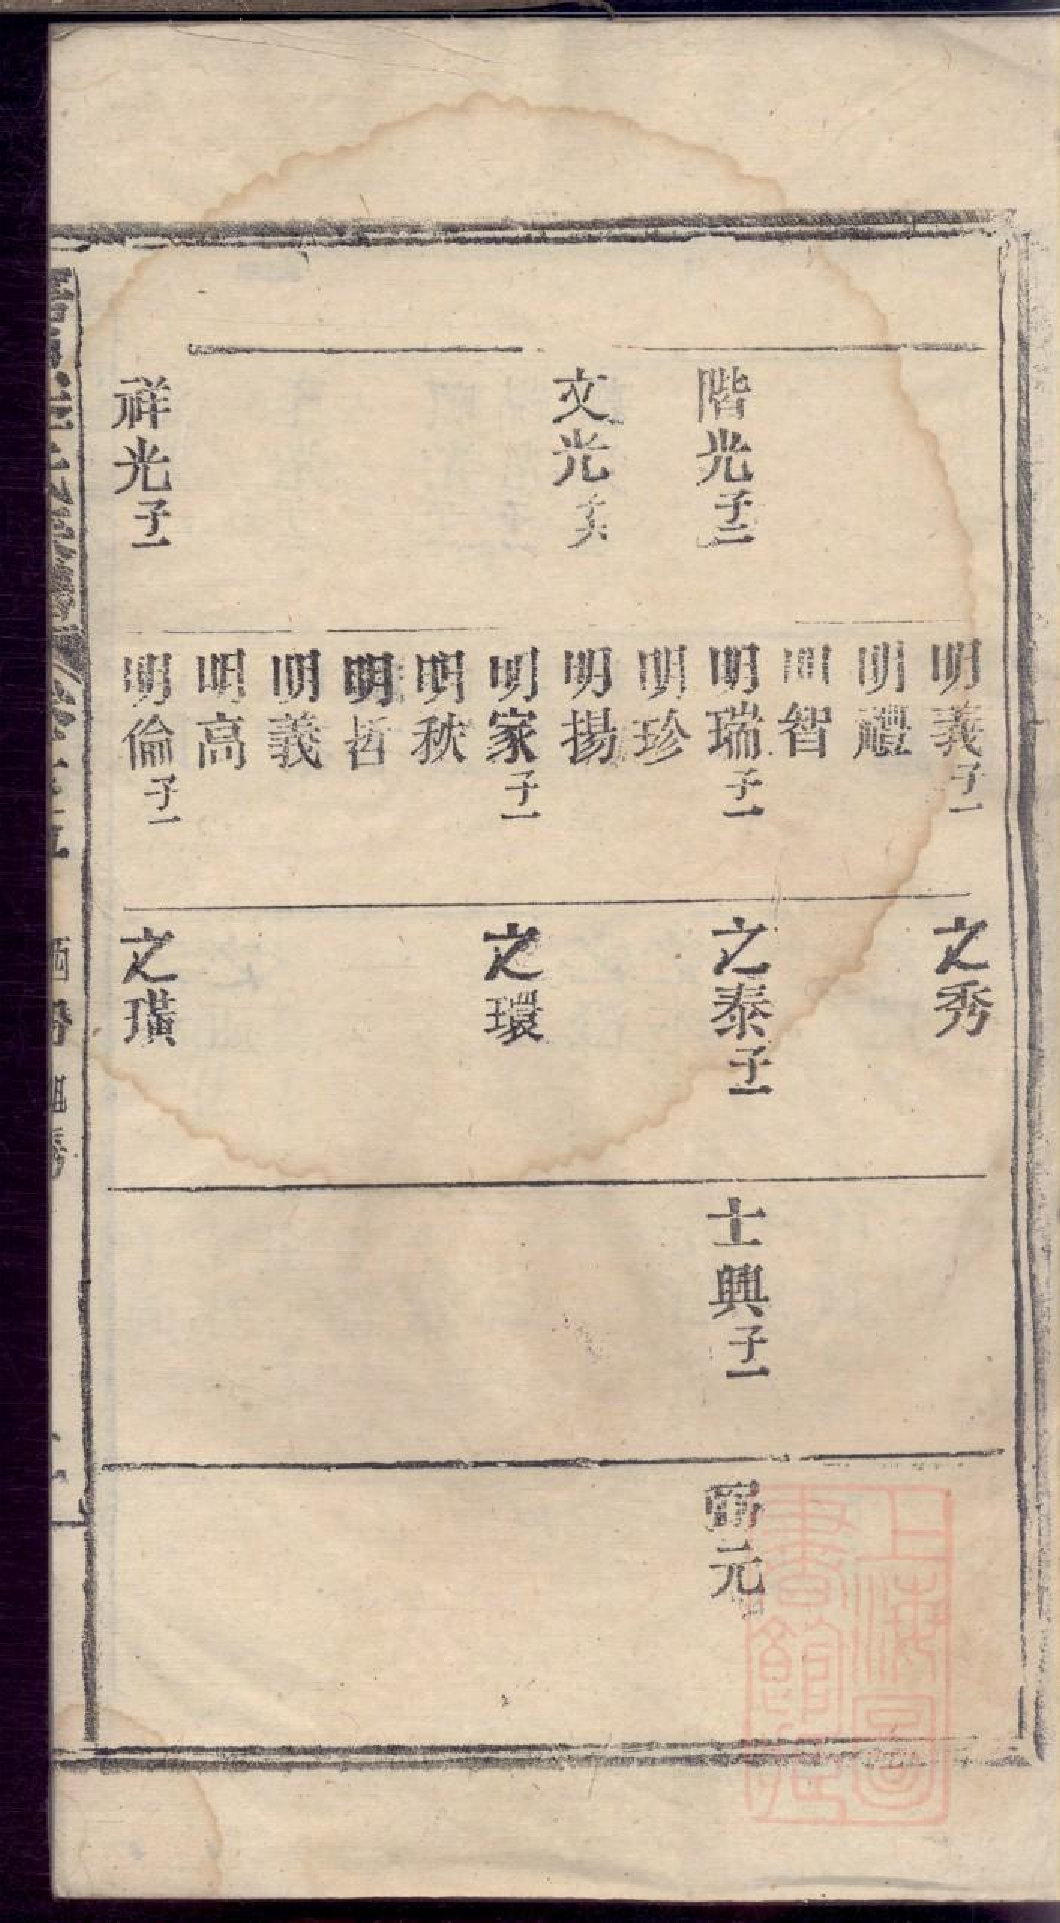 階光子二
文光子六
祥光子一
明義子一
明禮
明智
明瑞子一
明珍
明揚
明家子一
明秋
明哲
明義
明高
明倫子一
之秀
之泰子一
之環
之璜
士興子一
元
上海圖
書館藏